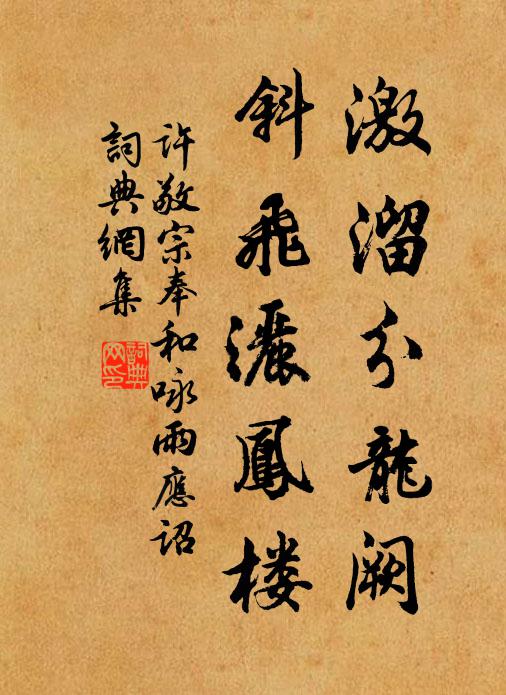 激溜分龍闕
斜飛灑鳳楼
許敬宗奉和咏雨應詔
詞典網集
詞典网印